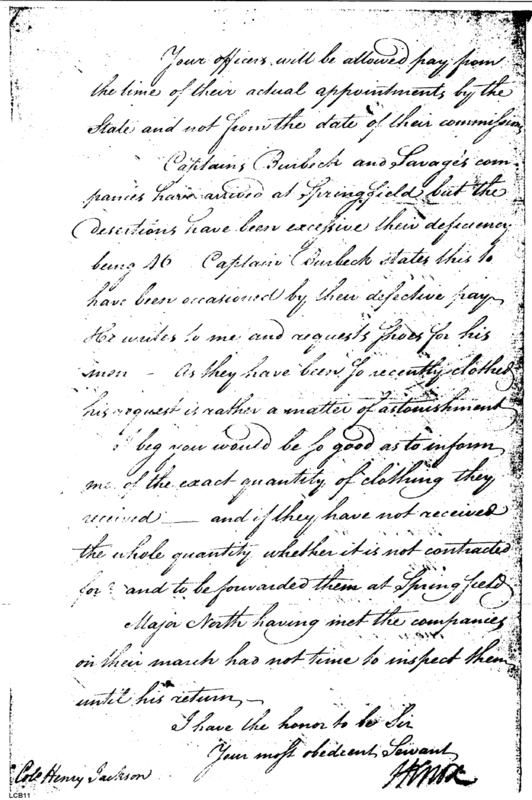 Your officers will be allowed pay from
the time of their actual appointments by the
State and not from the date of their commission
Captains Burbeck and Savage's com-
panies have arrived at Springfield but the
Desertions have been excessive their deficiency
being 46 Captain Burbeck states this to
have been occasioned by their defective pay
He writes to me and requests shoes for his
men - As they have been so recently clothed
his request is rather a matter of astonishment
I beg you would be so good as to inform
me of the exact quantity of clothing they
received — and if they have not received
the whole quantity whether it is not contracted
for? and to be forwarded them at Springfield
Major North having met the companies
on their march had not time to inspect them
until his return —
I have the honor to be Sir
Your most obedient Servant
HKnox
Colo Henry Jackson
LCB11